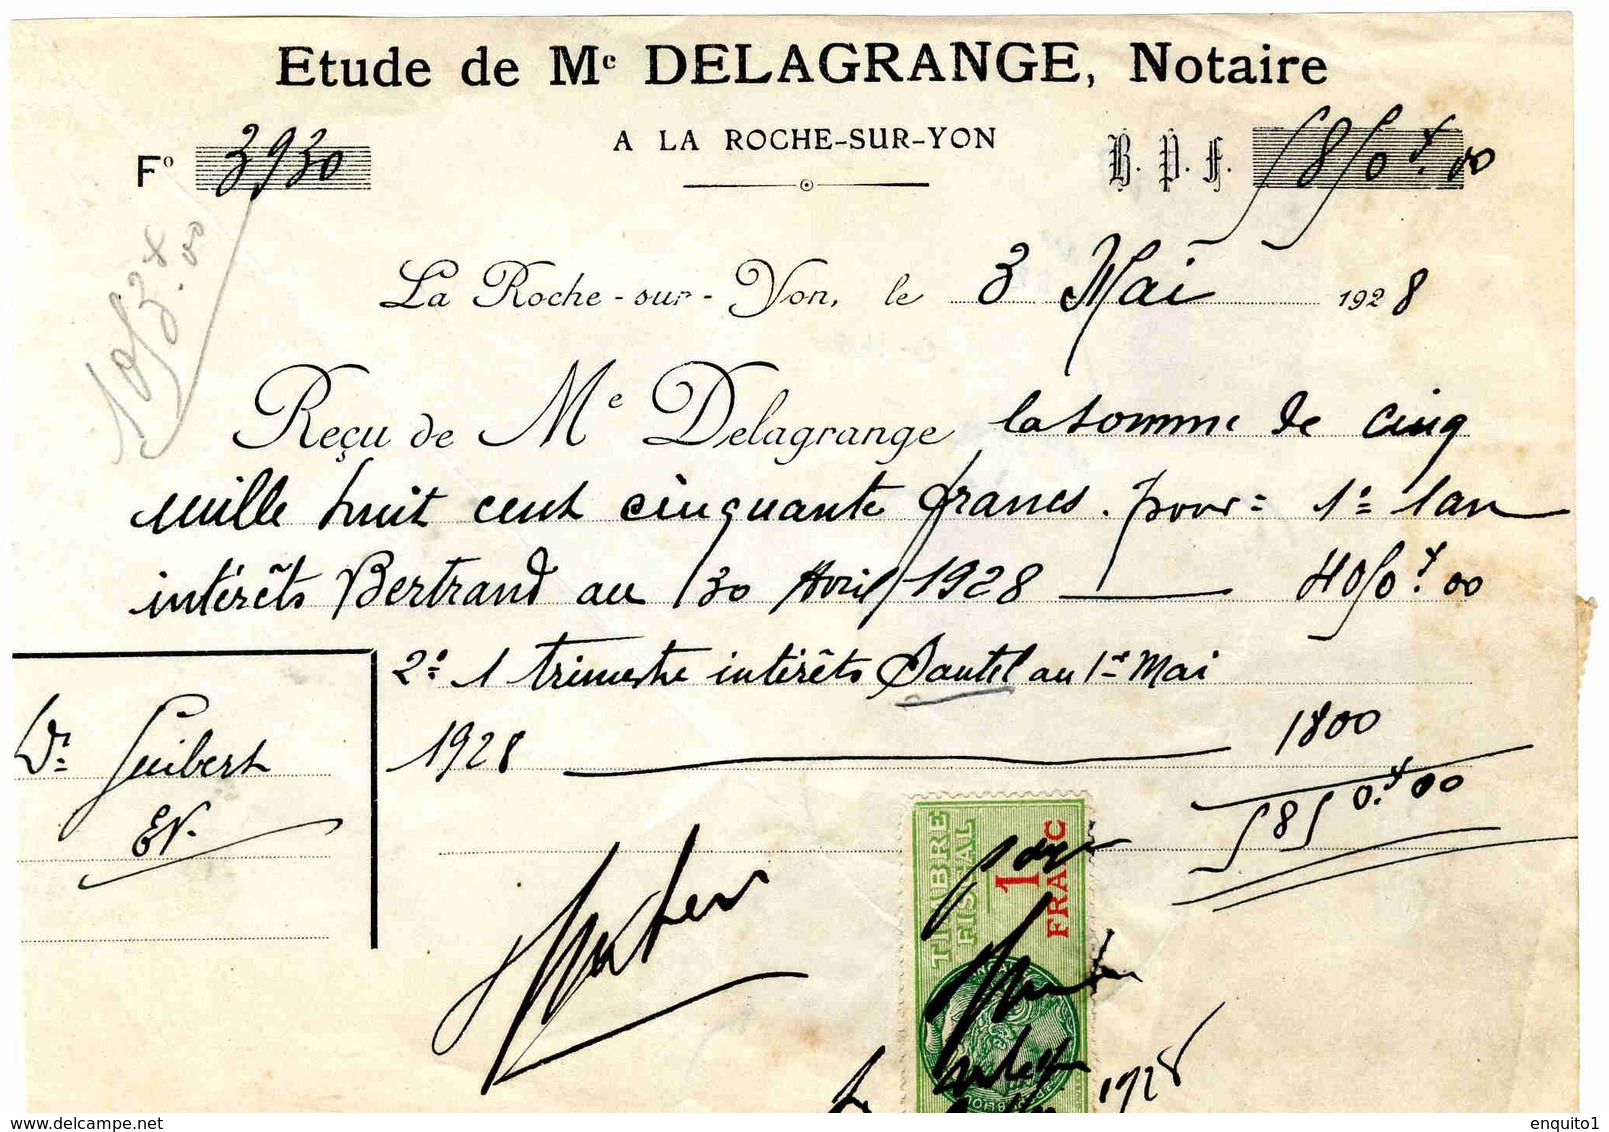 Etude de Me DELAGRANGE, Notaire
A LA ROCHE-SUR-YON
Fo 3930
B. P. F. 5850f.00
La Roche-sur-Yon, le 3 Mai 1928
Reçu de Me Delagrange la somme de cinq
mille huit cent cinquante francs. pour = 1º = 1 an
intérêts Bertrand au 30 Avril 1928 — 4050f.00
2º 1 trimestre intérêts au 1er Mai
1928 — 1800
5850f.00
Dr Guibert
EV.
TIMBRE
FISCAL
1
FRANC
1928
delcampe.net
enquito1